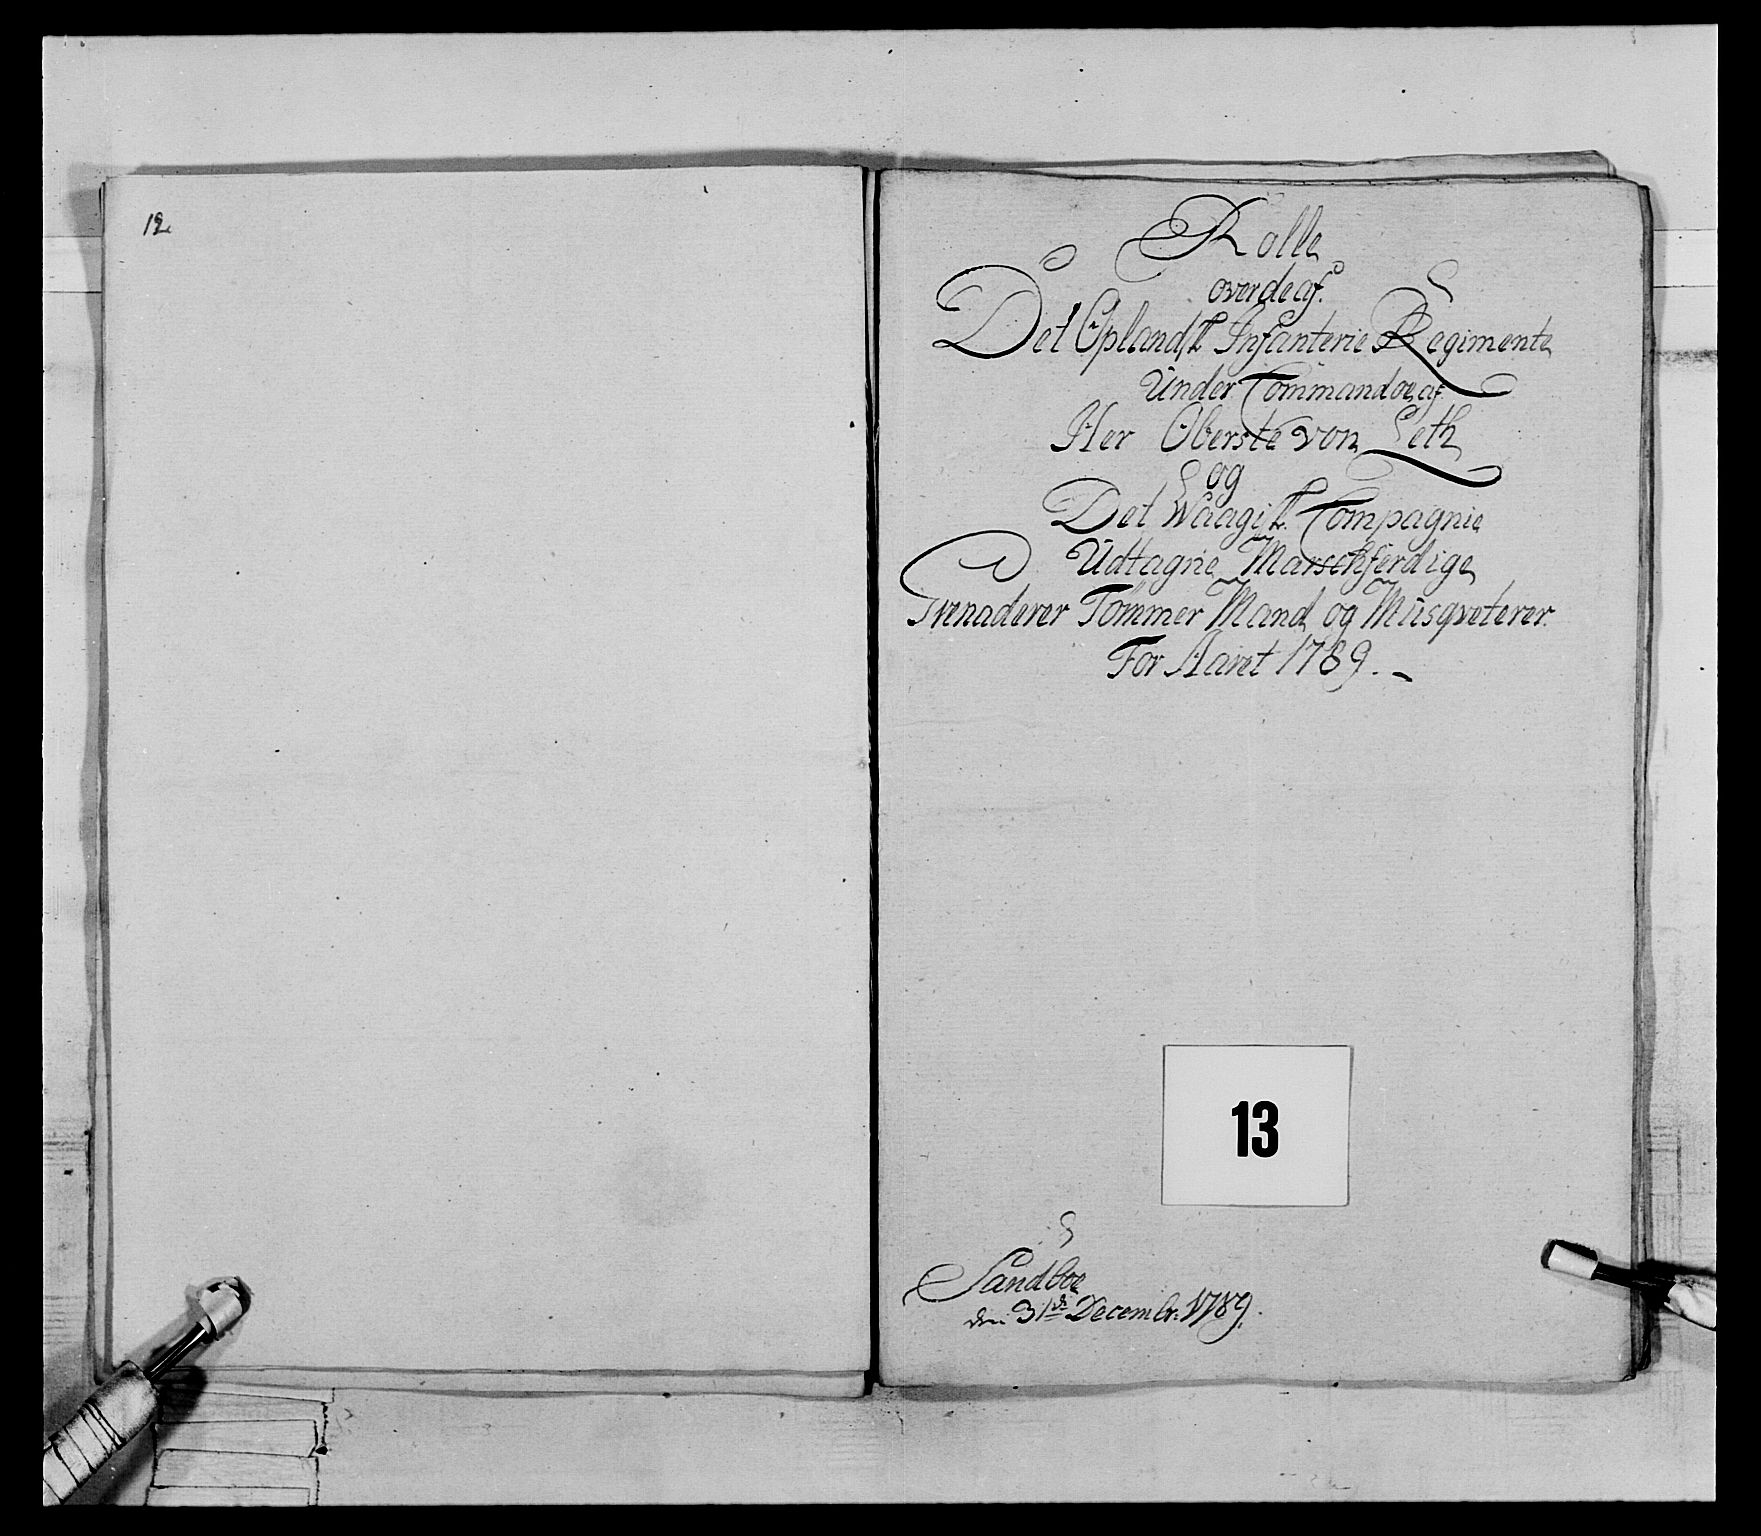 12
Rolle
over de af
Det Oplandsk Infanterie Regimente
Under Commandoe af
Her Oberste von Leth
og
Det Waagisk. Compagnie
Udtagne Marschferdige
Grenaderer Tømmer Mand og Musqveterer.
For Aaret 1789. -
13
Sandboe
den 31de Decembr. 1789.